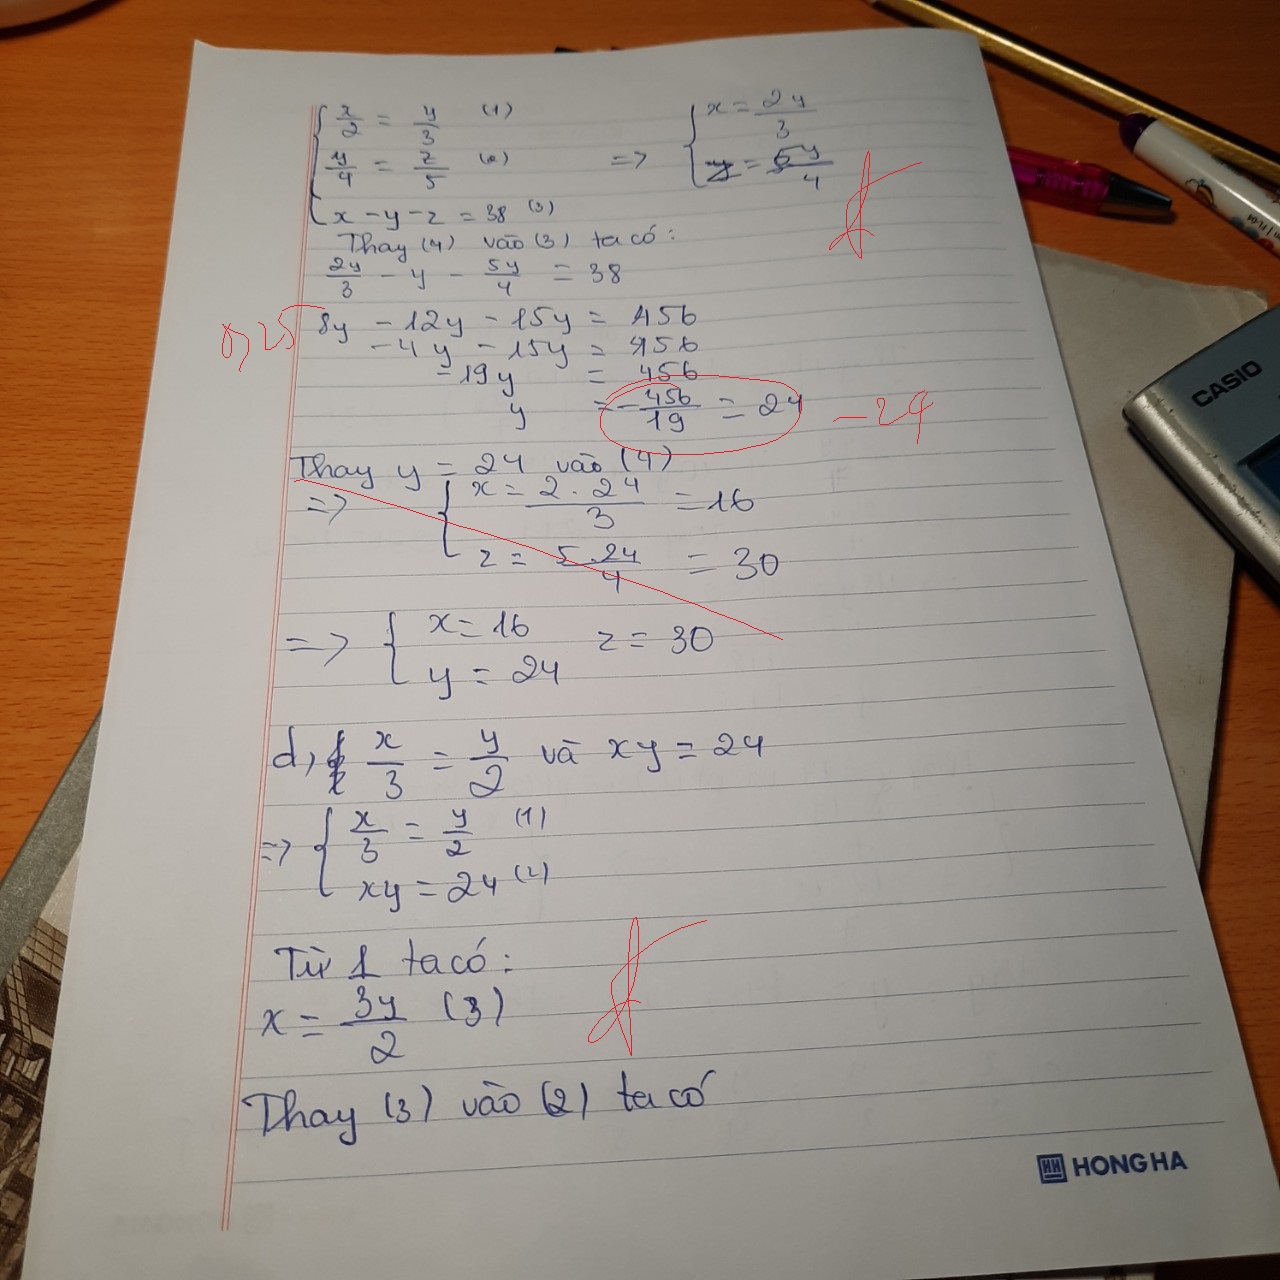 x/2 = y/3 (1) => x = 2y/3
y/4 = z/5 (2) y = 5y/4
x - y - z = 38 (3)
Thay (4) vào (3) ta có:
2y/3 - y - 5y/4 = 38
0,25 8y - 12y - 15y = 456
-4y - 15y = 456
-19y = 456
y = -456/19 = 24 -24
Thay y = 24 vào (4)
=> x = 2.24/3 = 16
z = 5.24/4 = 30
=> x = 16 z = 30
y = 24
d, x/3 = y/2 và xy = 24
=> x/3 = y/2 (1)
xy = 24 (2)
Từ 1 ta có:
x = 3y/2 (3)
Thay (3) vào (2) ta có
HONG HA
CASIO